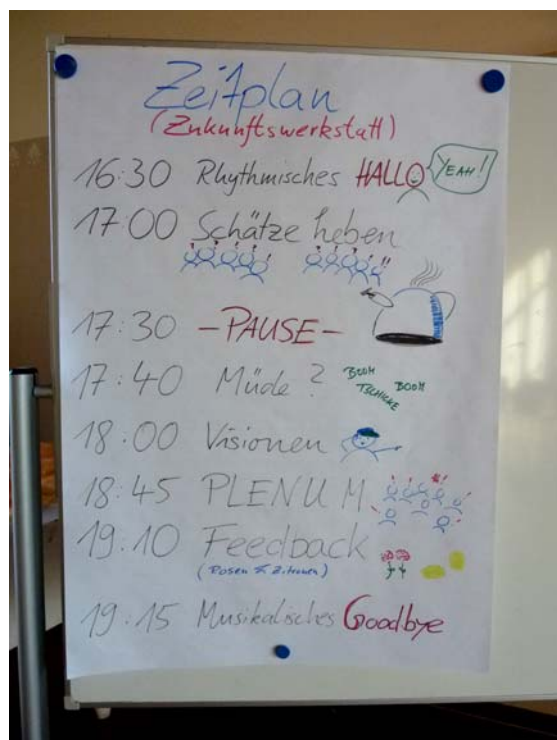 Zeitplan
(Zukunftswerkstatt)
16:30 Rhythmisches HALLO YEAH!
17:00 Schätze heben
17:30 -PAUSE-
17:40 Müde? BOOM TSCHICKE BOOM
18:00 Visionen
18:45 PLENUM
19:10 Feedback
(Rosen & Zitronen)
19:15 Musikalisches Goodbye